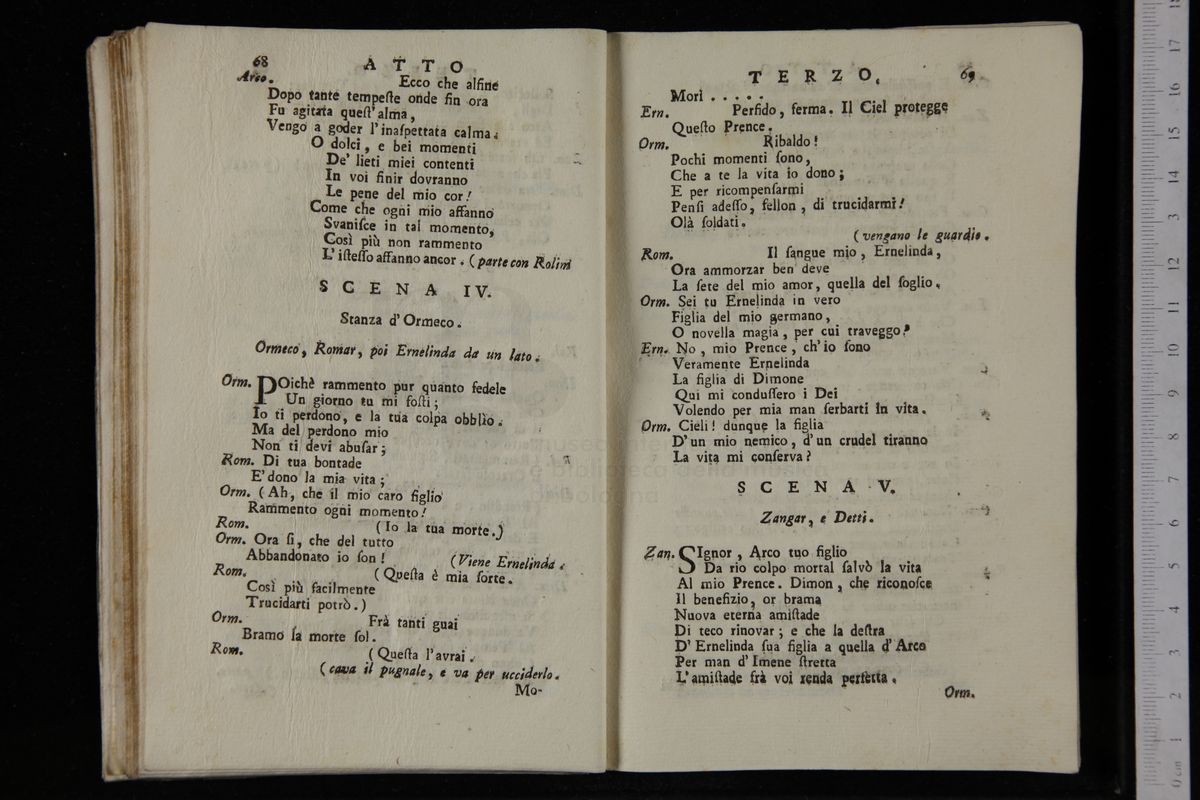 68 ATTO
Arco. Ecco che alfine
Dopo tante tempeſte onde fin ora
Fu agitata queſt' alma,
Vengo a goder l' inaſpettata calma.
O dolci, e bei momenti
De' lieti miei contenti
In voi finir dovranno
Le pene del mio cor!
Come che ogni mio affanno
Svaniſce in tal momento,
Così più non rammento
L' iſteſſo affanno ancor. (parte con Rolini
SCENA IV.
Stanza d' Ormeco.
Ormeco, Romar, poi Ernelinda da un lato.
Orm. POichè rammento pur quanto fedele
Un giorno tu mi foſti;
Io ti perdono, e la tua colpa obblìo.
Ma del perdono mio
Non ti devi abuſar;
Rom. Di tua bontade
E' dono la mia vita;
Orm. (Ah, che il mio caro figlio
Rammento ogni momento!
Rom. (Io la tua morte.)
Orm. Ora ſì, che del tutto
Abbandonato io ſon! (Viene Ernelinda.
Rom. (Queſta è mia ſorte.
Così più facilmente
Trucidarti potrò.)
Orm. Frà tanti guai
Bramo la morte ſol.
Rom. (Queſta l'avrai.
(cava il pugnale, e va per ucciderlo.
Mo-
TERZO. 69
Mori . . . . .
Ern. Perfido, ferma. Il Ciel protegge
Queſto Prence.
Orm. Ribaldo!
Pochi momenti ſono,
Che a te la vita io dono;
E per ricompenſarmi
Penſi adeſſo, fellon, di trucidarmi!
Olà ſoldati.
(vengano le guardie.
Rom. Il ſangue mio, Ernelinda,
Ora ammorzar ben deve
La ſete del mio amor, quella del ſoglio.
Orm. Sei tu Ernelinda in vero
Figlia del mio germano,
O novella magia, per cui traveggo?
Ern. No, mio Prence, ch' io ſono
Veramente Ernelinda
La figlia di Dimone
Qui mi conduſſero i Dei
Volendo per mia man ſerbarti in vita.
Orm. Cieli! dunque la figlia
D' un mio nemico, d' un crudel tiranno
La vita mi conſerva?
SCENA V.
Zangar, e Detti.
Zan. SIgnor, Arco tuo figlio
Da rio colpo mortal ſalvò la vita
Al mio Prence. Dimon, che riconoſce
Il benefizio, or brama
Nuova eterna amiſtade
Di teco rinovar; e che la deſtra
D' Ernelinda ſua figlia a quella d' Arco
Per man d' Imene ſtretta
L' amiſtade frà voi renda perfetta.
Orm.